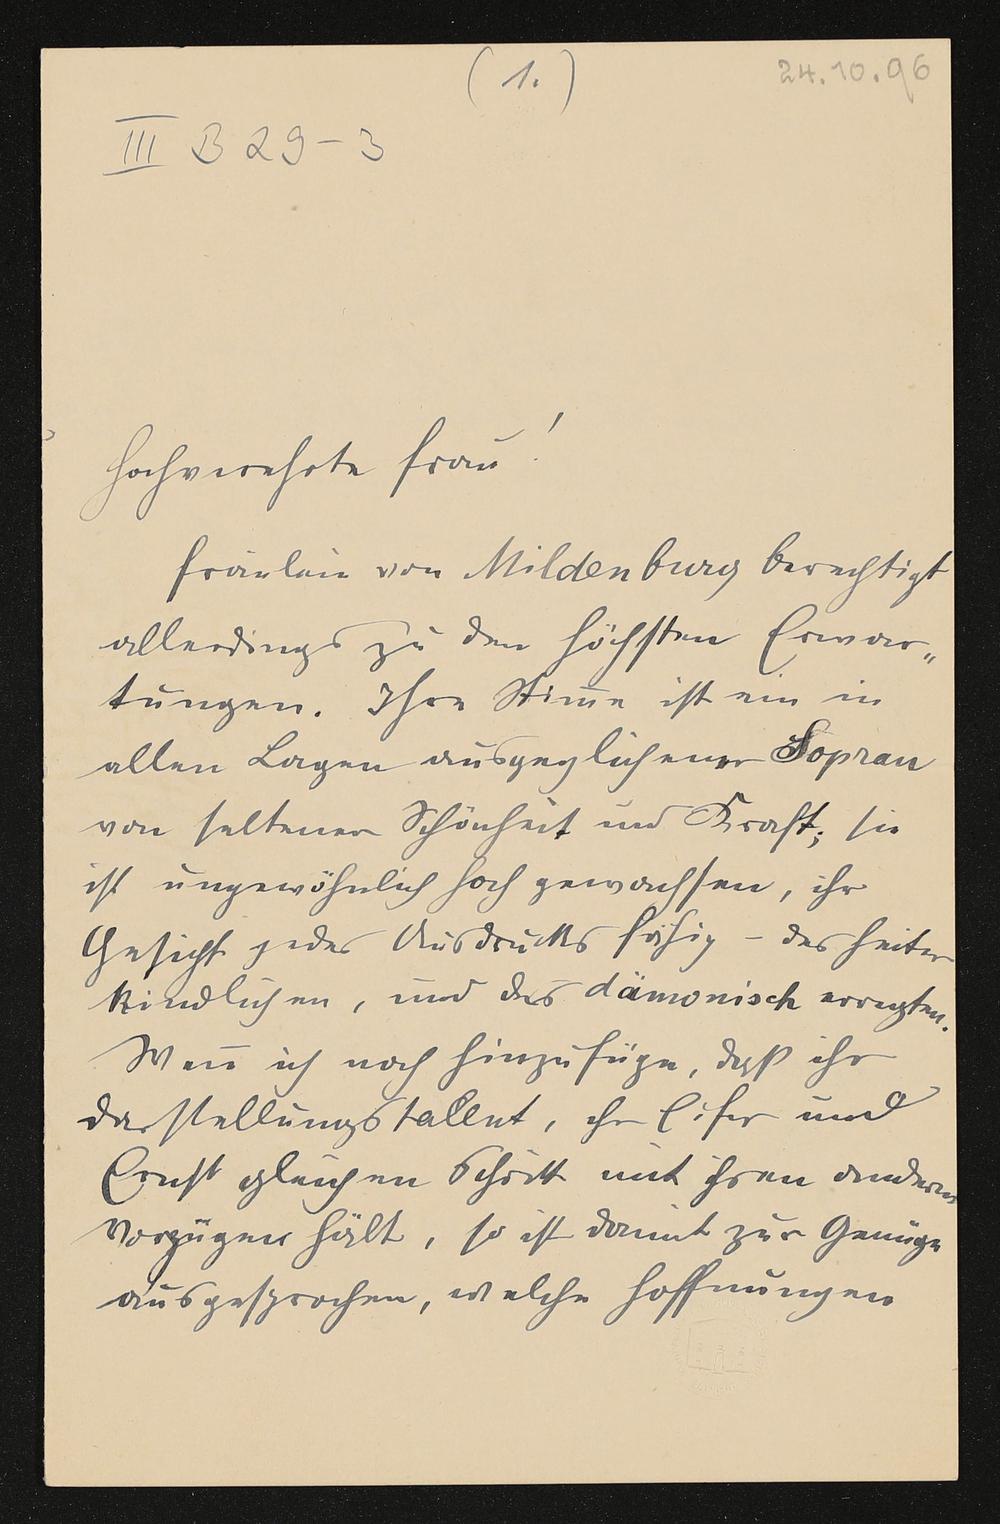 (1.)
24.10.96
III B 29-3
Hochverehrte Frau!
Fräulein von Mildenburg berechtigt
allerdings zu den höchsten Erwar„
tungen. Ihre Stim̅e ist ein in
allen Lagen ausgeglichener Sopran
von seltener Schönheit und Kraft; sie
ist ungewöhnlich hoch gewachsen, ihr
Gesicht jedes Ausdrucks fähig – des heiter
kindlichen, und des dämonisch erregten.
Wen̅ ich noch hinzufüge, daß ihr
Darstellungstallent, ihr Eifer und
Ernst gleichen Schritt mit ihren anderen
Vorzügen hält, so ist damit zur Genüge
ausgesprochen, welche Hoffnungen